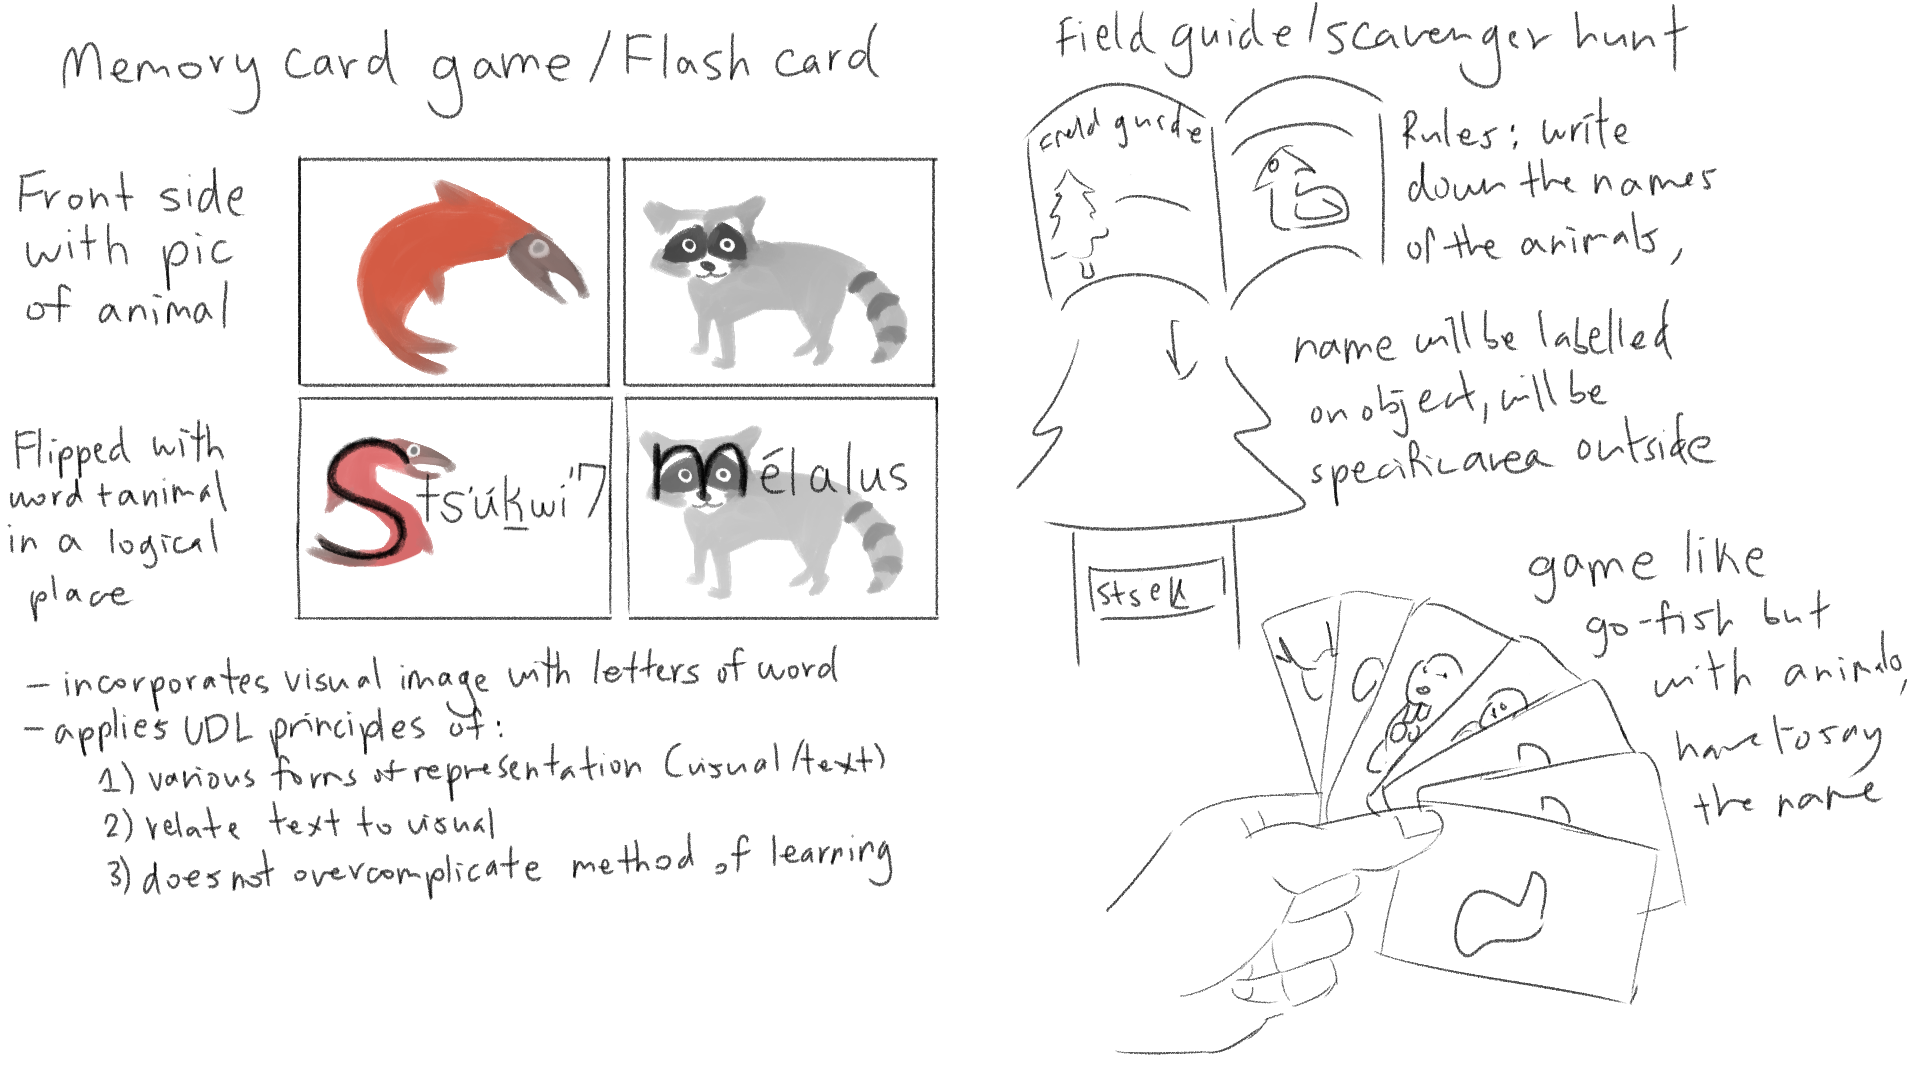 Memory card game/Flash card
Front side
with pic
of animal
Flipped with
word + animal
in a logical
place
Sts'úḵwi'7
mélalus
- incorporates visual image with letters of word
- applies UDL principles of:
1) various forms of representation (visual/text)
2) relate text to visual
3) does not overcomplicate method of learning
Field guide/scavenger hunt
field guide
Rules: write
down the names
of the animals,
name will be labelled
on object, will be
specific area outside
stsek
game like
go-fish but
with animals,
have to say
the name